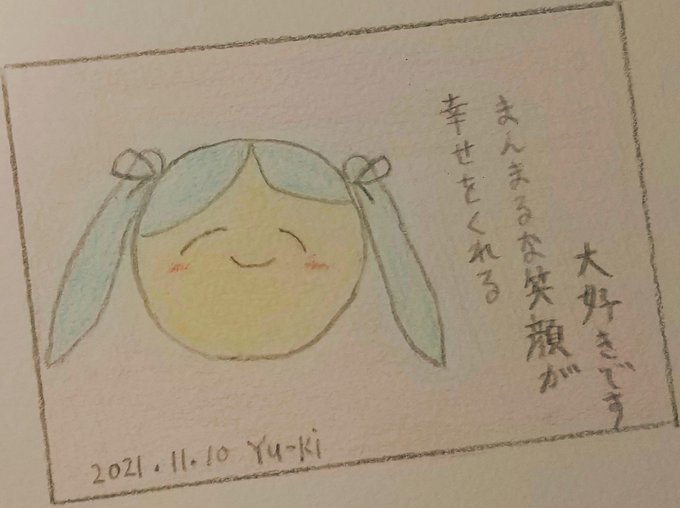 大好きです
まんまるな笑顔が
幸せをくれる
2021.11.10 Yu-ki